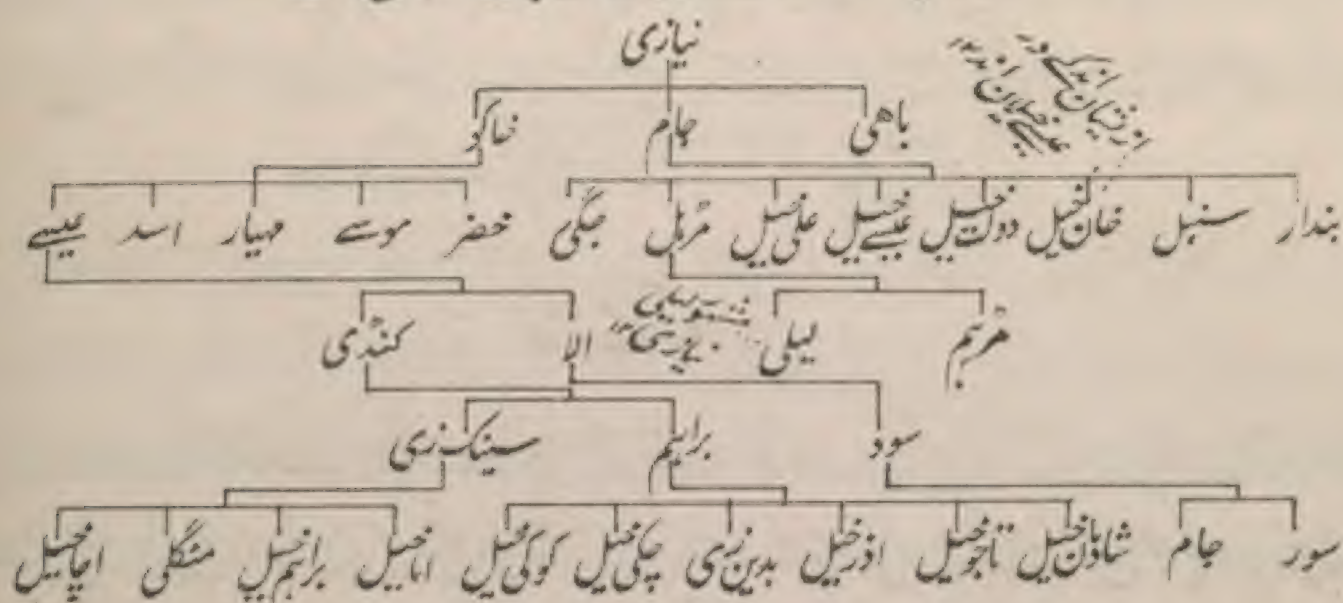 نیازی
باهی جام خاکو
بندار سنبل خان خیل دولت خیل عیسے خیل علی خیل مڑہل جگی خضر موسے مہیار اسد عیسے
مڑہم لیلی الا کنڈی
سود براہیم سینک زی
سور جام شادن خیل تاجو خیل اذر خیل بدین زی چکی خیل کوکی خیل اما خیل براہم خیل مشکلی اچا خیل